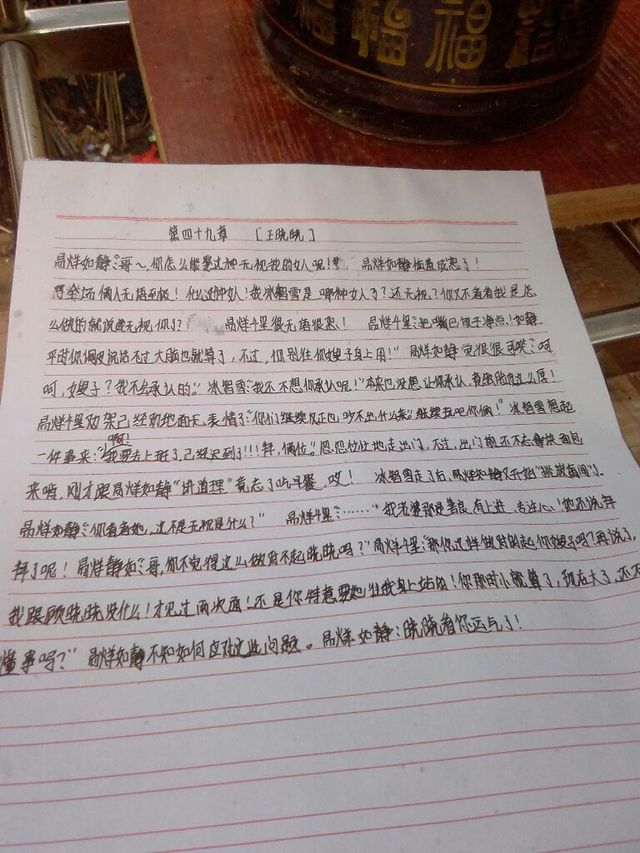 福福福
第四十九章 [王晓晓]
易烊如静:"哥~,你怎么能娶这种无视我的女人呢!" 易烊如静恼羞成怒了!
全场俩人无语至极! 什么这种女人!我冰翎雪是哪种女人了?还无视?你又不看看我是怎
么做的就说我无视你了?" 易烊千玺很无语很怒! 易烊千玺:"把嘴巴放干净点!如静
平时你俩说话不过大脑也就算了,不过,你别往你嫂子身上用!" 易烊如静觉很很可笑:"呵
呵,嫂子?我不会承认的。" 冰翎雪:"我还不想你承认呢!"本来也没想让你承认,
易烊千玺劝架已经劝地面无表情了:"你们继续反正也吵不出什么来。继续 吧你俩!" 冰翎雪想起
一件事来:"啊!我要去上班了,已经迟到了!!!拜,俩位。"匆匆忙忙地走出门,不过,出门前还不忘拿块面包
来啃,刚才跟易烊如静"讲道理"竟忘了吃早餐,哎! 冰翎雪走了后,易烊如静又开始
易烊如静:"你看看她,这不是无视是什么?" 易烊千玺:……"我老婆那是善良,有上进,专注心!他还说拜
拜了呢! 易烊静如:"哥,你不觉得这么做对不起晓晓吗?"易烊千玺:"那你这样做对的起你嫂子吗?再说了,
我跟顾晓晓没什么!才见过两次面!还是你特意要她往我身上站的!你那时小就算了,现在大了,还不
懂事吗?" 易烊如静不知如何应对这些问题。易烊如静:晓晓看你运气了!